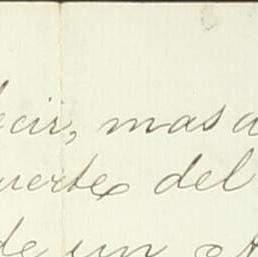 ecir, mas a
uerte del
de un ot